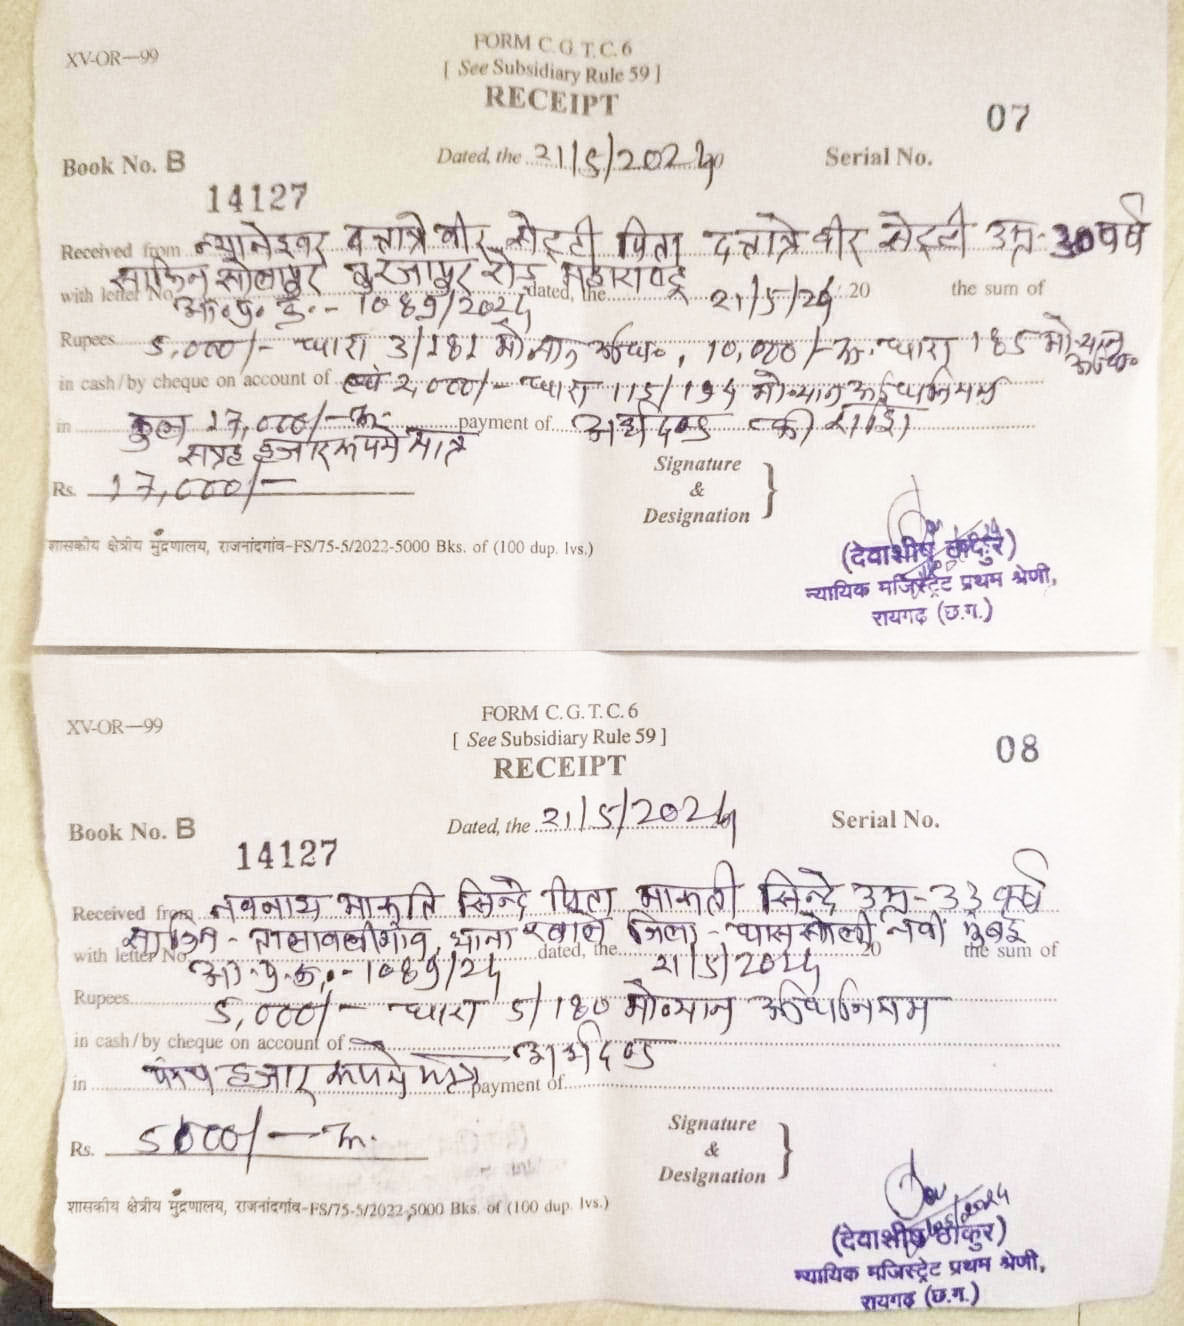 XV-OR—99
FORM C.G.T.C.6
[ See Subsidiary Rule 59 ]
RECEIPT
07
Book No. B
Dated, the 21/5/2024
Serial No.
14127
Received from न्यानेश्वर दत्तात्रे वीर सेट्टी पिता दत्तात्रे वीर सेट्टी उम्र-30 वर्ष
साकिन सोलापुर रोड
with letter No. dated, the 21/5/24 20 the sum of
Rupees 5,000/- धारा 3/181 मो०यान अधि०, 10,000/-रू. धारा 185 मो०यान अधि०
in cash/by cheque on account of 2,000/- धारा मो०यान अधिनियम
in कुल 17,000/-रू. payment of अर्थदण्ड की राशि
सत्रह हजार रूपये मात्र
Rs. 17,000/-
Signature
&
Designation
शासकीय क्षेत्रीय मुद्रणालय, राजनांदगांव-FS/75-5/2022-5000 Bks. of (100 dup. lvs.)
(देवाशीष ठाकुर)
न्यायिक मजिस्ट्रेट प्रथम श्रेणी,
रायगढ़ (छ.ग.)
XV-OR—99
FORM C.G.T.C.6
[ See Subsidiary Rule 59 ]
RECEIPT
08
Book No. B
Dated, the 21/5/2024
Serial No.
14127
Received from नवनाथ मारूति सिन्दे पिता मारूती सिन्दे उम्र-33 वर्ष
साकिन - थाना जिला - नवी मुंबई
with letter No. dated, the 21/5/2024 20 the sum of
Rupees 5,000/- धारा 5/180 मो०यान अधिनियम
in cash/by cheque on account of अर्थदण्ड
in पांच हजार रूपये मात्र payment of
Rs. 5000/- रू.
Signature
&
Designation
शासकीय क्षेत्रीय मुद्रणालय, राजनांदगांव-FS/75-5/2022-5000 Bks. of (100 dup. lvs.)
(देवाशीष ठाकुर)
न्यायिक मजिस्ट्रेट प्रथम श्रेणी,
रायगढ़ (छ.ग.)